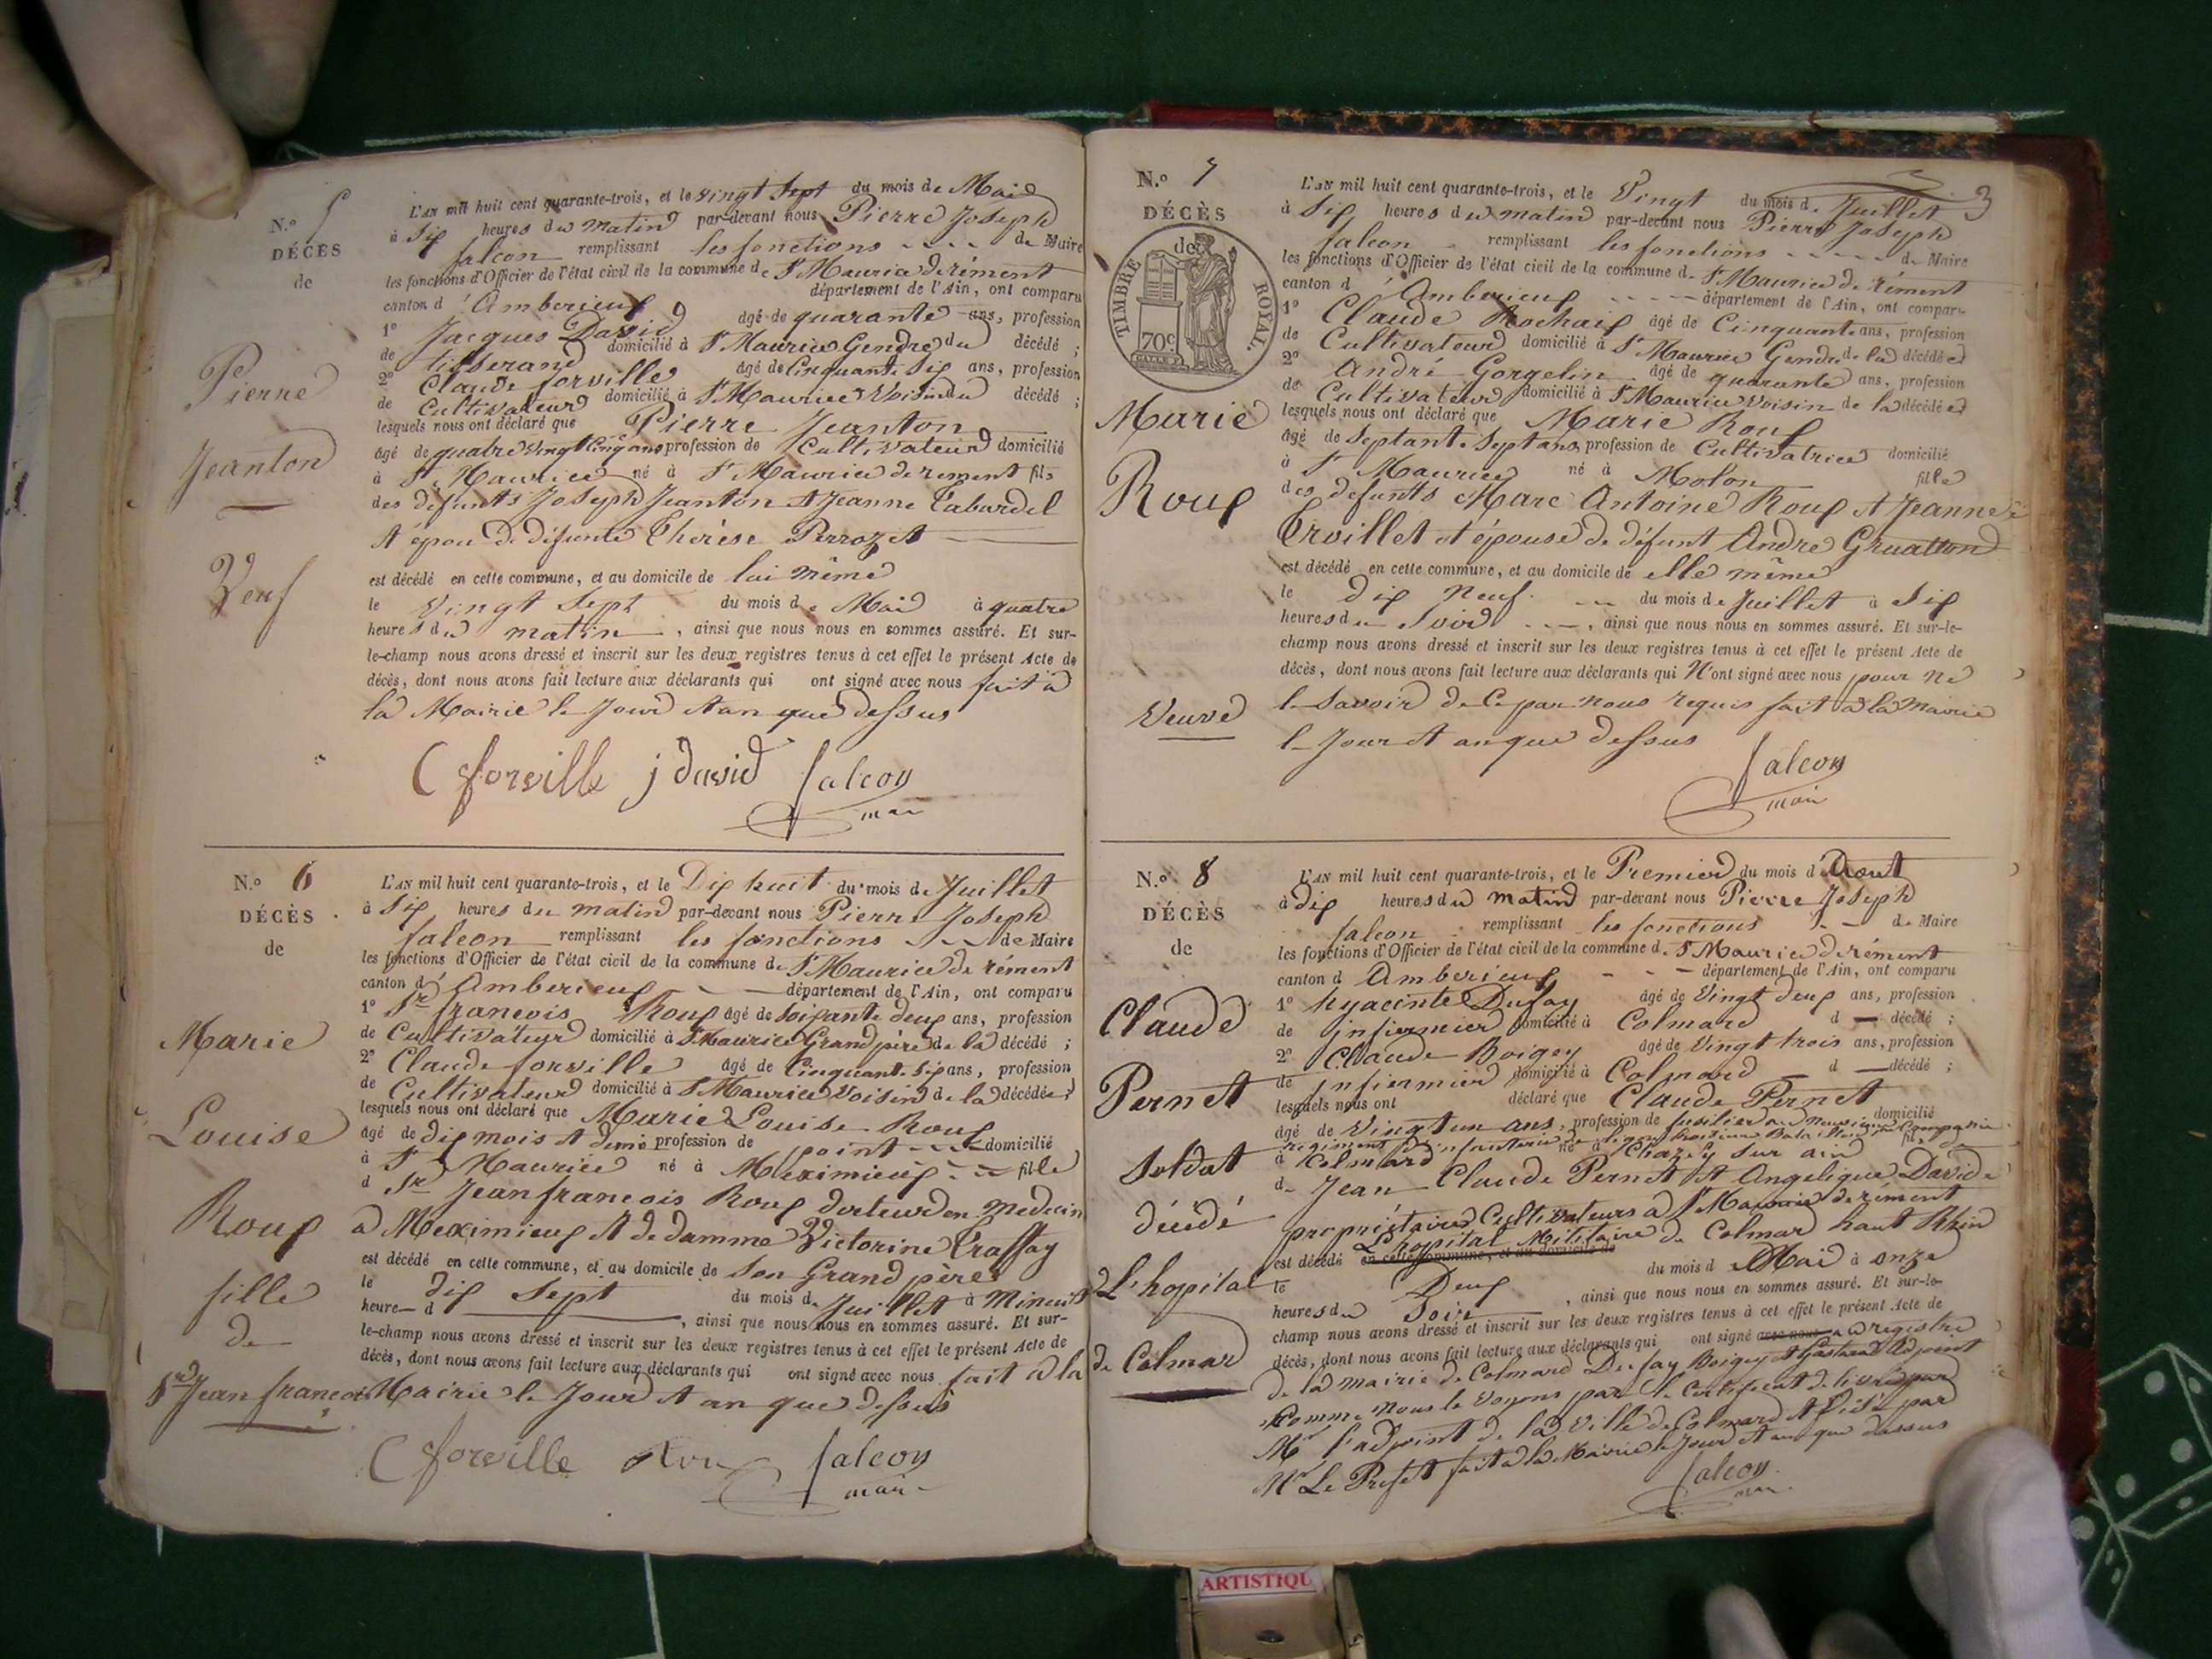 N.o 5
DÉCÈS
de
Pierre
Jeanton
Veuf
L'AN mil huit cent quarante-trois, et le vingt Sept du mois de Mai
à Six heures du matin par-devant nous Pierre Joseph
falcon remplissant les fonctions de Maire
les fonctions d'Officier de l'état civil de la commune de St Maurice de rément
canton d'Amberieux département de l'Ain, ont comparu
1° Jacques David âgé de quarante ans, profession
de tisserand domicilié à St Maurice Gendre du décédé ;
2° Claude forville âgé de Cinquante Six ans, profession
de Cultivateur domicilié à St Maurice Voisin du décédé ;
lesquels nous ont déclaré que Pierre Jeanton
âgé de quatre vingt Cinq ans profession de Cultivateur domicilié
à St Maurice né à St Maurice de rement fils
des défunts Joseph Jeanton et Jeanne Tabardel
et époux de défunte Thérèse Perrozet
est décédé en cette commune, et au domicile de lui même
le vingt Sept du mois de Mai à quatre
heures du matin, ainsi que nous nous en sommes assuré. Et sur-
le-champ nous avons dressé et inscrit sur les deux registres tenus à cet effet le présent Acte de
décès, dont nous avons fait lecture aux déclarants qui ont signé avec nous fait à
la Mairie le Jour et an que dessus
C forville j david falcon
maire
N.o 6
DÉCÈS
de
Marie
Louise
Roux
fille
de
Sr Jean francois
L'AN mil huit cent quarante-trois, et le Dix huit du mois de Juillet
à Six heures du matin par-devant nous Pierre Joseph
falcon remplissant les fonctions de Maire
les fonctions d'Officier de l'état civil de la commune de St Maurice de rément
canton d'Amberieux département de l'Ain, ont comparu
1° Sr francois Roux âgé de Soixante deux ans, profession
de Cultivateur domicilié à St Maurice Grand père de la décédé ;
2° Claude forville âgé de Cinquante Six ans, profession
de Cultivateur domicilié à St Maurice Voisin de la décédée ;
lesquels nous ont déclaré que Marie Louise Roux
âgé de dix mois et demi profession de point domicilié
à St Maurice né à Meximieux fille
d Sr Jean francois Roux docteur en Medecin
à Meximieux et de damme Victorine Traffay
est décédé en cette commune, et au domicile de Son Grand père
le dix Sept du mois de Juillet à Minuit
heure d , ainsi que nous nous en sommes assuré. Et sur-
le-champ nous avons dressé et inscrit sur les deux registres tenus à cet effet le présent Acte de
décès, dont nous avons fait lecture aux déclarants qui ont signé avec nous fait à la
Mairie le Jour et an que dessus
C forville Roux falcon
maire
3
N.o 7
DÉCÈS
de
TIMBRE ROYAL.
70c
Marie
Roux
Veuve
L'AN mil huit cent quarante-trois, et le Vingt du mois de Juillet
à Six heures du matin par-devant nous Pierre Joseph
falcon remplissant les fonctions de Maire
les fonctions d'Officier de l'état civil de la commune de St Maurice de rément
canton d'Amberieux département de l'Ain, ont comparu
1° Claude Rochaix âgé de Cinquante ans, profession
de Cultivateur domicilié à St Maurice Gendre de la décédée
2° André Gorgelin âgé de quarante ans, profession
de Cultivateur domicilié à St Maurice Voisin de la décédée
lesquels nous ont déclaré que Marie Roux
âgé de Septante Sept ans profession de Cultivatrice domicilié
à St Maurice né à Molon fille
des defunts Marc Antoine Roux et Jeanne
Ervillet et épouse de défunt André Gruatton
est décédé en cette commune, et au domicile de elle même
le dix Neuf du mois de Juillet à Six
heures du Soir, ainsi que nous nous en sommes assuré. Et sur-le-
champ nous avons dressé et inscrit sur les deux registres tenus à cet effet le présent Acte de
décès, dont nous avons fait lecture aux déclarants qui N'ont signé avec nous pour Ne
le Savoir de Ce par nous requis fait à la Mairie
le Jour et an que dessus
falcon
maire
N.o 8
DÉCÈS
de
Claude
Pernet
Soldat
décédé
à L'hopital
de Colmar
L'AN mil huit cent quarante-trois, et le Premier du mois d'Aout
à dix heures du matin par-devant nous Pierre Joseph
falcon remplissant les fonctions de Maire
les fonctions d'Officier de l'état civil de la commune de St Maurice de rément
canton d Amberieux département de l'Ain, ont comparu
1° hyacinte Dufay âgé de Vingt deux ans, profession
de infirmier domicilié à Colmard d décédé ;
2° Claude Boigey âgé de Vingt trois ans, profession
de infirmier domicilié à Colmard d décédé ;
lesquels nous ont déclaré que Claude Pernet
âgé de Vingt un ans, profession de fusilier au neuvieme domicilié
regiment d'infanterie de legere troisieme Bataillon Compagnie
à Colmard né à Chazey sur ain fils de
de Jean Claude Pernet et Angelique David
propriétaires Cultivateurs à St Maurice de rement
L'hopital Militaire de Colmar haut Rhin
est décédé en cette commune, et au domicile de
le Deux du mois d Mai à onze
heures du Soir, ainsi que nous nous en sommes assuré. Et sur-le-
champ nous avons dressé et inscrit sur les deux registres tenus à cet effet le présent Acte de
décès, dont nous avons fait lecture aux déclarants qui ont signé avec nous au registre
de la mairie de Colmard Dufay Boigey et Adjoint
Comme Nous le Voyons par le Certificat délivré par
Mr l'adjoint de la Ville de Colmard et Visé par
Mr Le Prefet fait à la Mairie le Jour et an que dessus
falcon
maire
ARTISTIQU